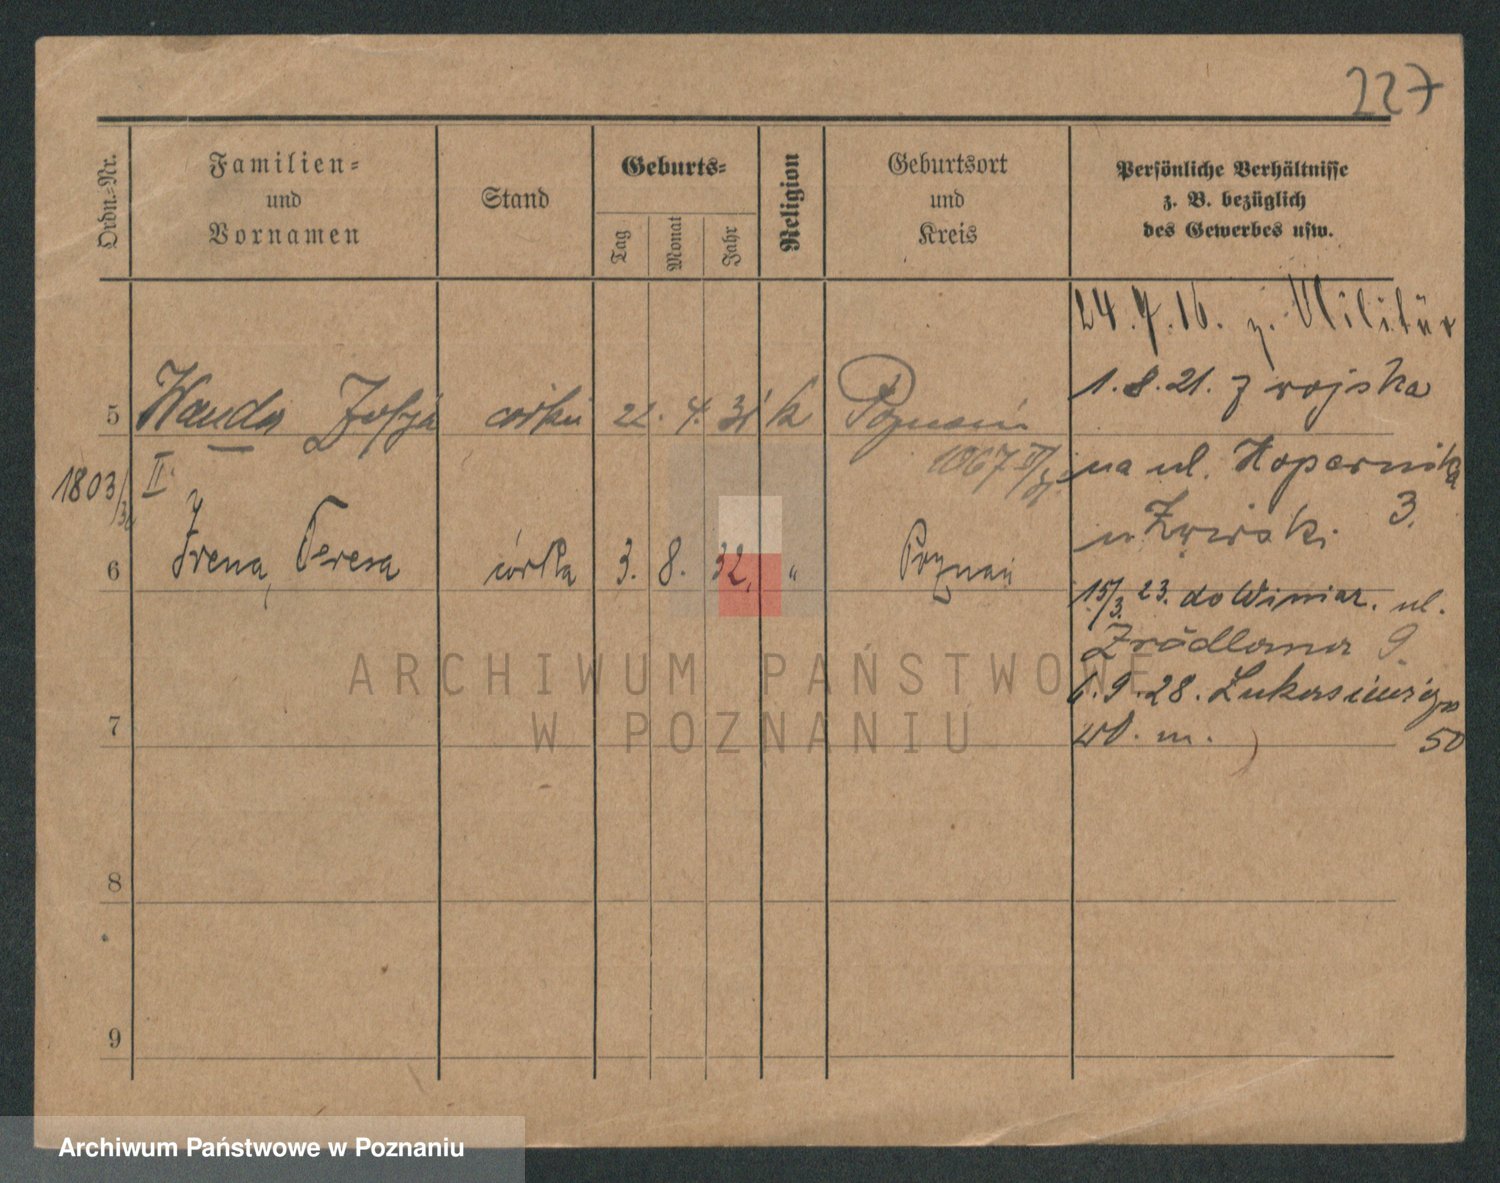 227
Ordn.-Nr.
Familien-
und
Vornamen
Stand
Geburts-
Tag
Monat
Jahr
Religion
Geburtsort
und
Kreis
Persönliche Verhältnisse
z. B. bezüglich
des Gewerbes usw.
24. 7. 16. z. Militär
1. 8. 21. z wojska
5 Wanda Zofja córka 22. 4. 31 k Poznań
1067
na ul. Kopernika
3.
1803/
II
6 Irena, Teresa córka 3. 8. 32, " Poznań
15/3. 23. do Winiar. ul.
Źródlana 9.
6. 9. 28. Łukasiewicza
50
w. m.
7
8
9
ARCHIWUM PAŃSTWOWE
W POZNANIU
Archiwum Państwowe w Poznaniu